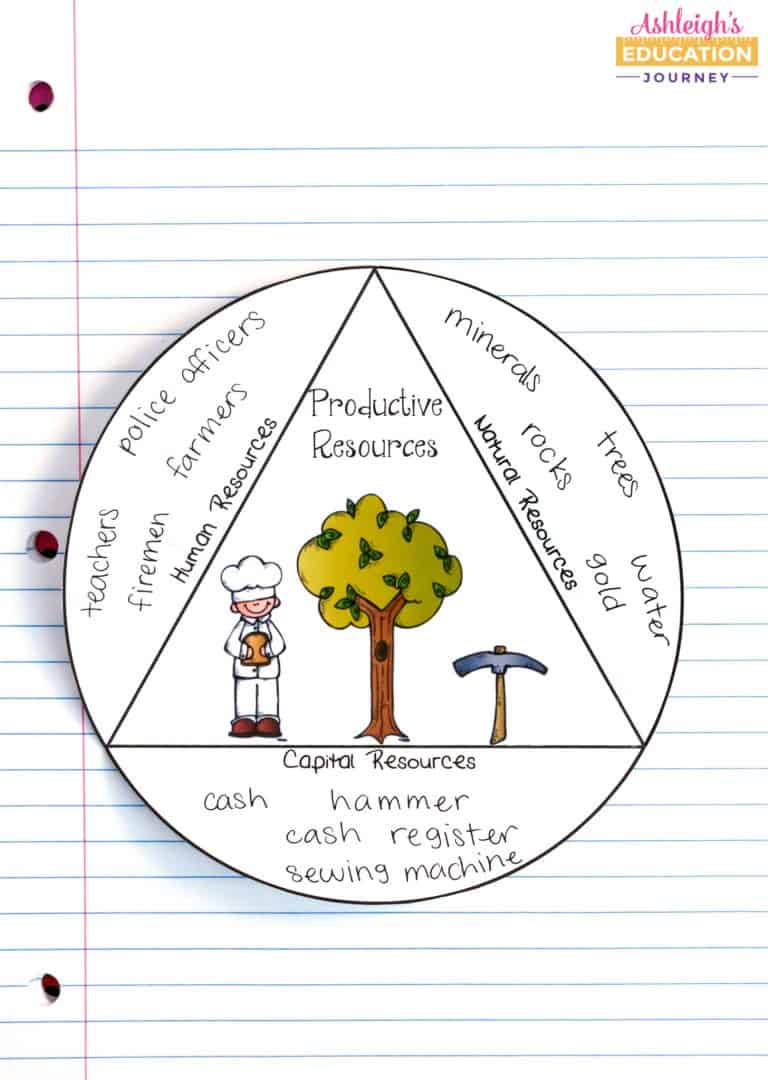 Ashleigh's
EDUCATION
JOURNEY
Productive
Resources
police officers
farmers
teachers
firemen
Human Resources
minerals
rocks
trees
gold
water
Natural Resources
Capital Resources
cash hammer
cash register
sewing machine